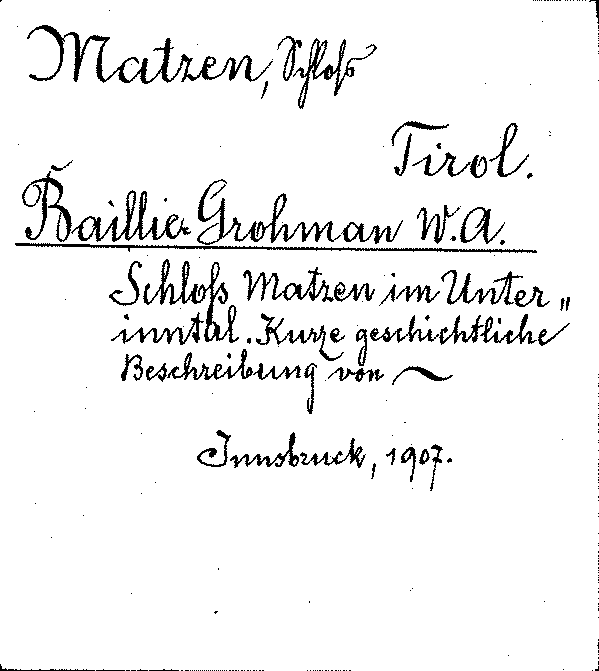 Matzen, Schloß
Tirol.
Baillie-Grohman W.A.
Schloß Matzen im Unter„
inntal. Kurze geschichtliche
Beschreibung von ~
Innsbruck, 1907.